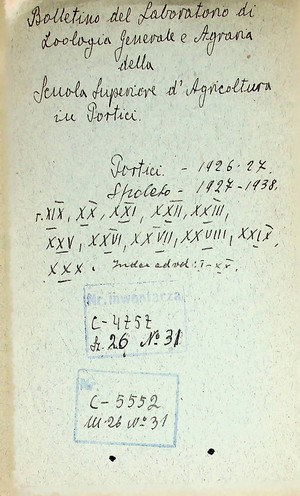 Bolletino del Laboratorio di
Zoologia Generale e Agraria
della
Scuola Superiore d'Agricoltura
in Portici.
Portici. - 1926-27.
Spoleto - 1927-1938.
r. XIX, XX, XXI, XXII, XXIII,
XXV, XXVI, XXVII, XXVIII, XXIX,
XXX. Index ad vol: I-XX.
Nr. inwentarza
C-4757
26 No 31
Nr.
C-5552
III-26 No 31